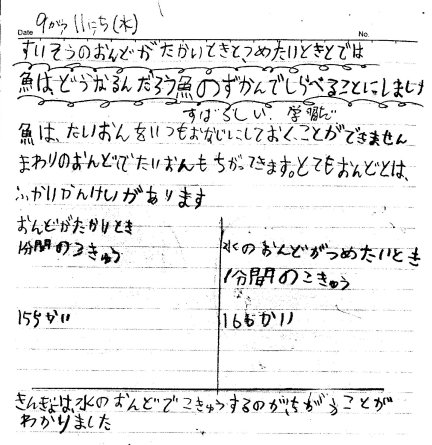 Date 9がつ11にち(水) No.
すいそうのおんどがたかいときと、つめたいときとでは
魚は、どうなるんだろう魚のずかんでしらべることにしました
すばらしい、学習だ
魚は、たいおんをいつもおなじにしておくことができません
まわりのおんどでたいおんもちがってきます。とてもおんどとは、
ふかいかんけいがあります
おんどがたかいとき
1分間のこきゅう
155かい
水のおんどがつめたいとき
1分間のこきゅう
16かい
きんぎょは、水のおんどでこきゅうするのが、ちがうことが
わかりました